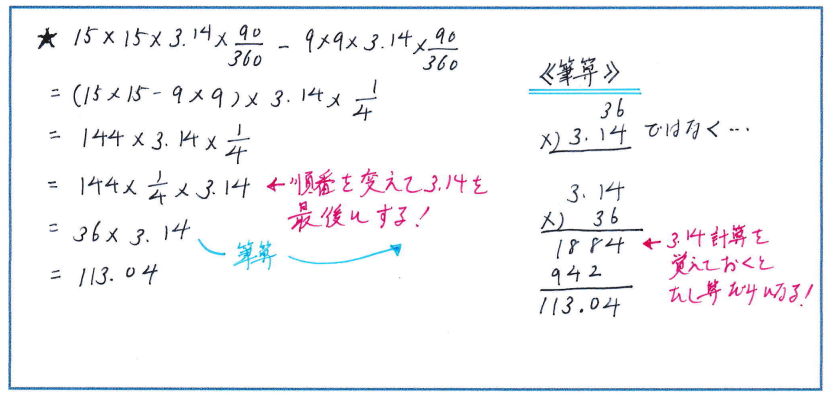 ★ 15×15×3.14×90/360 − 9×9×3.14×90/360
= (15×15−9×9)×3.14×1/4
= 144×3.14×1/4
= 144×1/4×3.14 ←順番を変えて3.14を
最後にする!
= 36×3.14
筆算
= 113.04
《筆算》
36
×) 3.14 ではなく…
3.14
×) 36
1884 ←3.14計算を
覚えておくと
942
たし算だけになる!
113.04